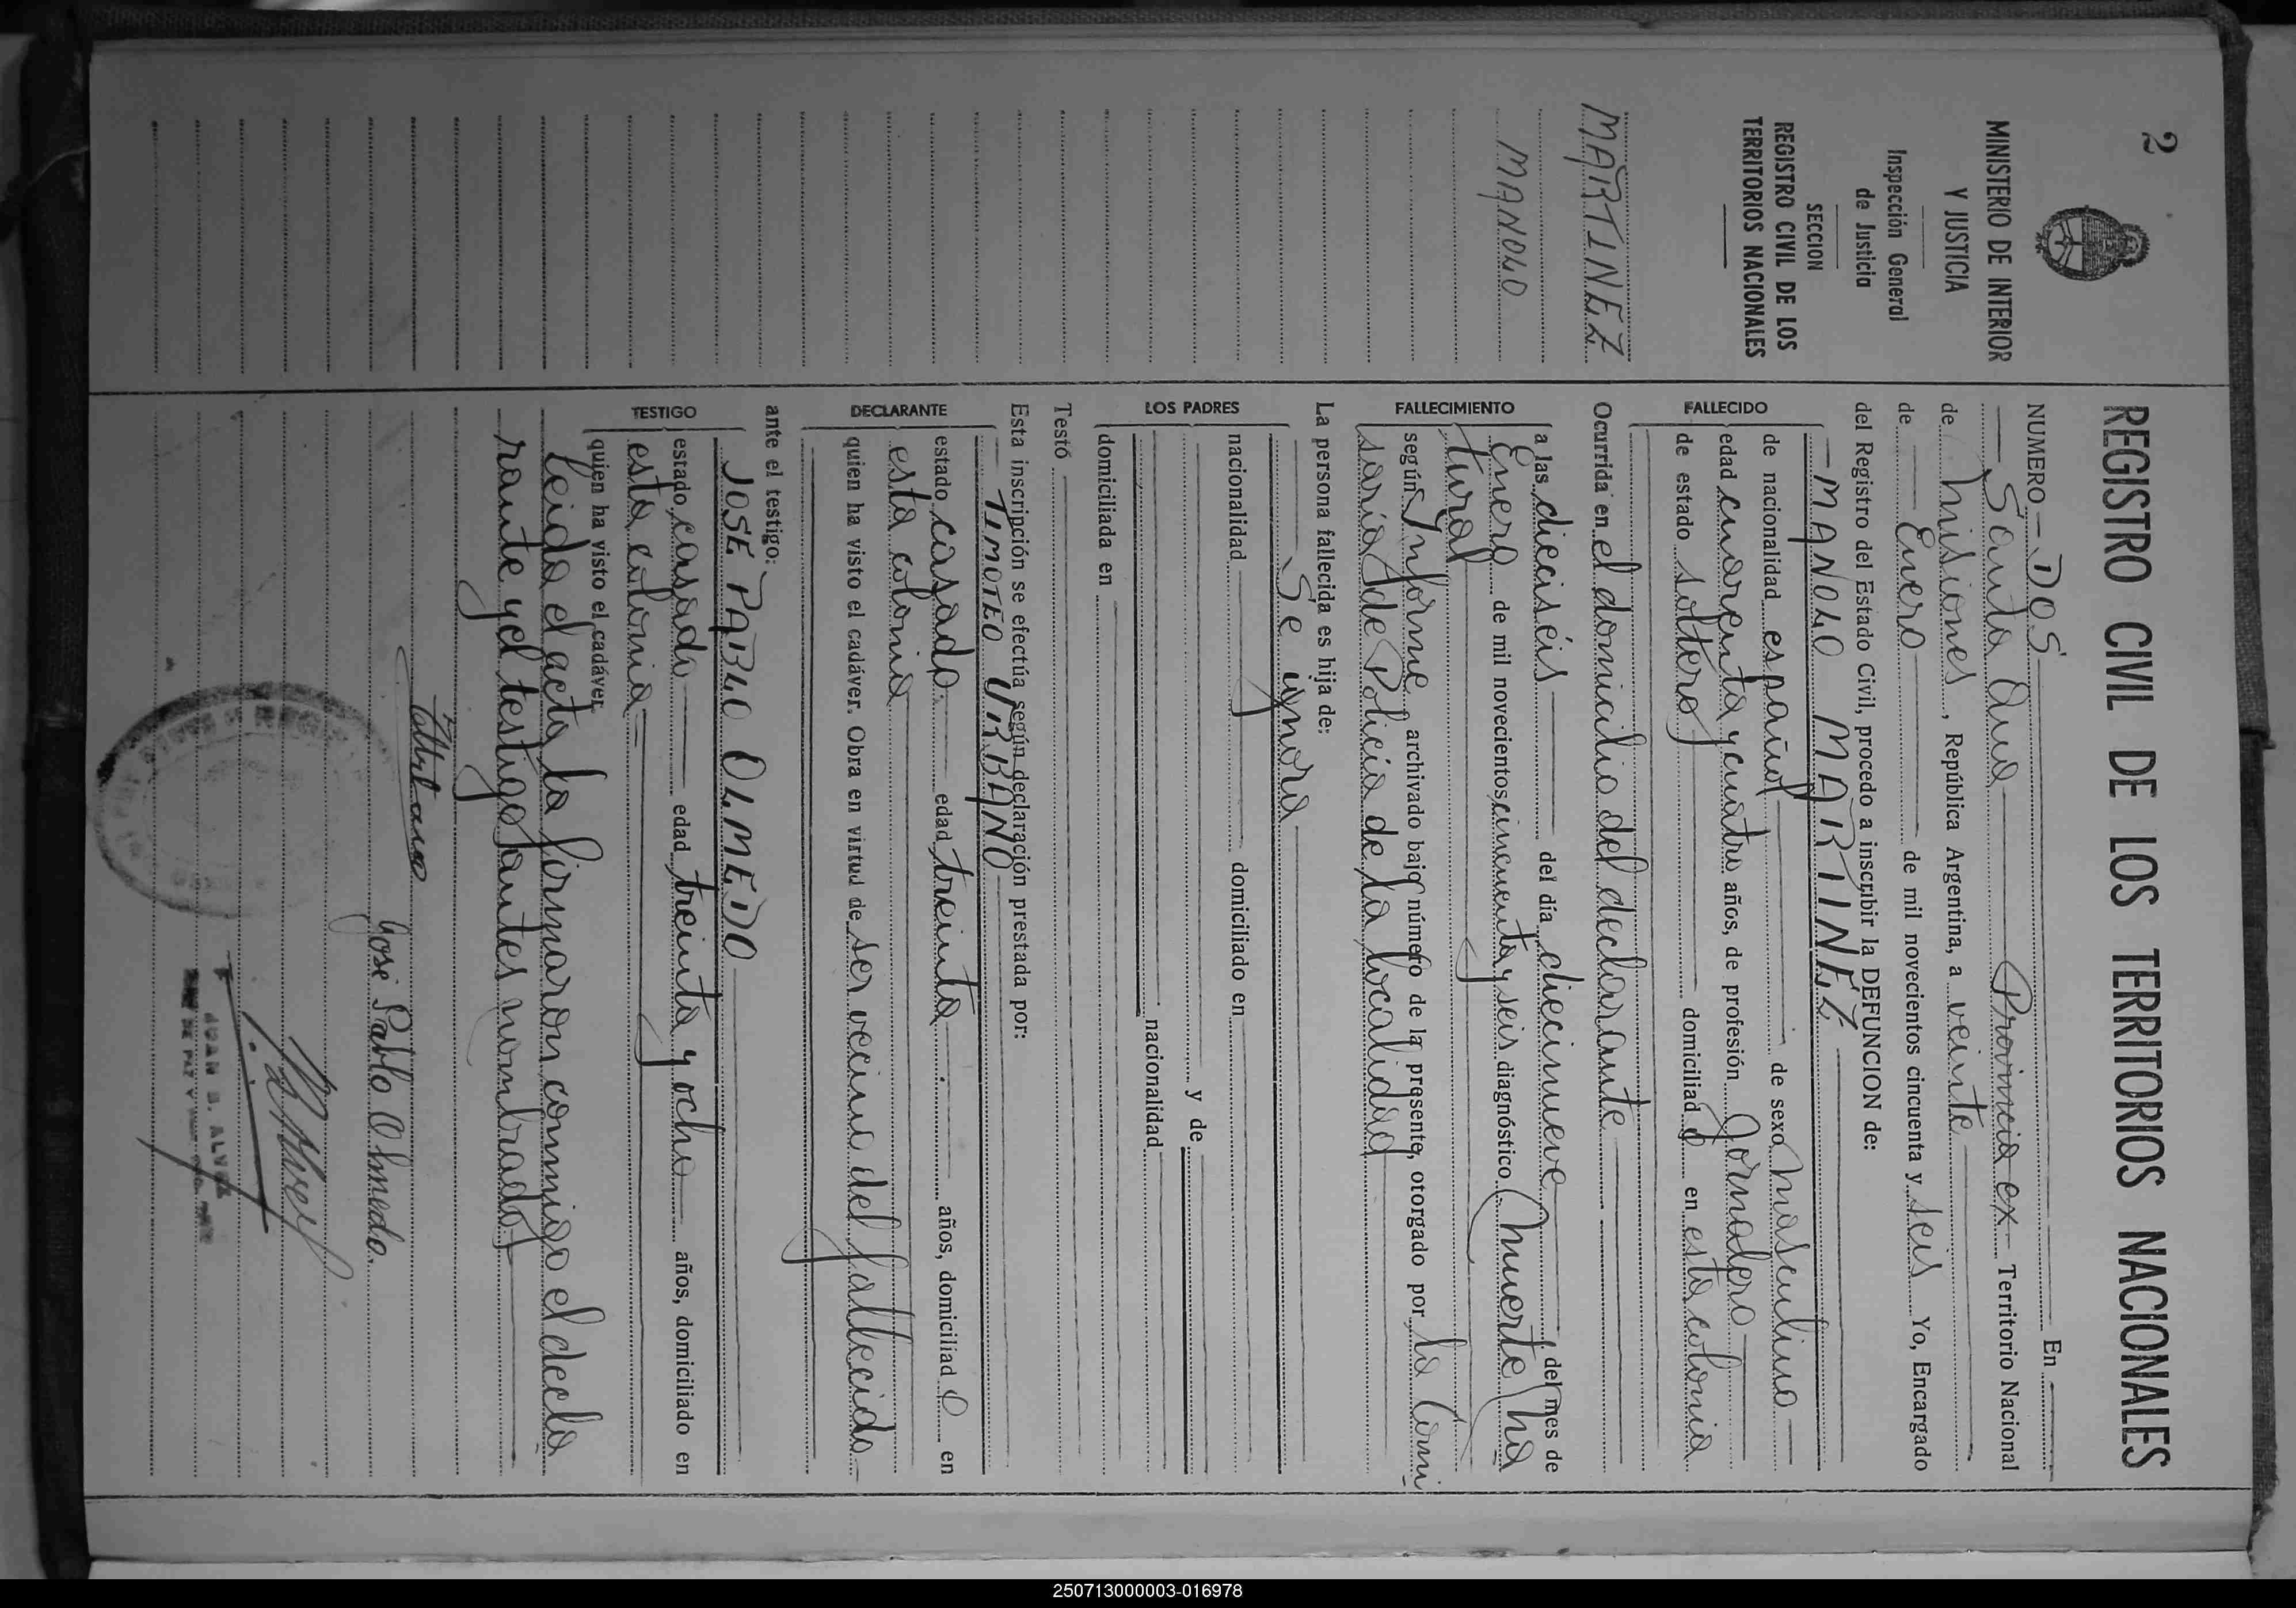 2
MINISTERIO DE INTERIOR
Y JUSTICIA
Inspección General
de Justicia
SECCION
REGISTRO CIVIL DE LOS
TERRITORIOS NACIONALES
MARTINEZ
MANOLO
REGISTRO CIVIL DE LOS TERRITORIOS NACIONALES
NUMERO DOS En
Santa Ana Provincia ex Territorio Nacional
de Misiones, República Argentina, a veinte
de Enero de mil novecientos cincuenta y seis Yo, Encargado
del Registro del Estado Civil, procedo a inscribir la DEFUNCION de:
MANOLO MARTINEZ
FALLECIDO
de nacionalidad español de sexo masculino
edad cuarenta y cuatro años, de profesión Jornalero
de estado soltero domiciliad o en esta colonia
Ocurrida en el domicilio del declarante
FALLECIMIENTO
a las dieciséis del día diecinueve del mes de
Enero de mil novecientos cincuenta y seis diagnóstico (Muerte na
tural
según Informe, archivado bajo número de la presente, otorgado por la Comi
saría de Policía de la localidad
La persona fallecida es hija de:
LOS PADRES
Se ignora
nacionalidad domiciliado en
y de
nacionalidad
domiciliada en
Testó
Esta inscripción se efectúa según declaración prestada por:
DECLARANTE
TIMOTEO URBANO
estado casado edad treinta años, domiciliad o en
esta colonia
quien ha visto el cadáver. Obra en virtud de ser vecino del fallecido
ante el testigo:
TESTIGO
JOSE PABLO OLMEDO
estado casado edad treinta y ocho años, domiciliado en
esta colonia
quien ha visto el cadáver.
Leida el acta la firmaron conmigo el decla
rante y el testigo antes nombrados
José Pablo Olmedo.
JUAN B. ALVEZ
250713000003-016978